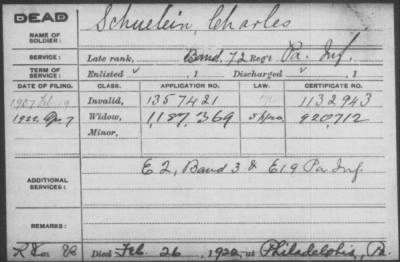 DEAD
NAME OF SOLDIER: Schuelein, Charles
SERVICE: Late rank, Band, 72 Reg't Pa. Inf.
TERM OF SERVICE: Enlisted , 1 Discharged , 1
DATE OF FILING. CLASS. APPLICATION NO. LAW. CERTIFICATE NO.
1907 Feb 19 Invalid, 1357421 1132943
1922 Apr 7 Widow, 1,187,369 920,712
Minor,
ADDITIONAL SERVICES: E 2, Band 3 & E 19 Pa Inf.
REMARKS:
Died Feb. 26, 1922, at Philadelphia, Pa.